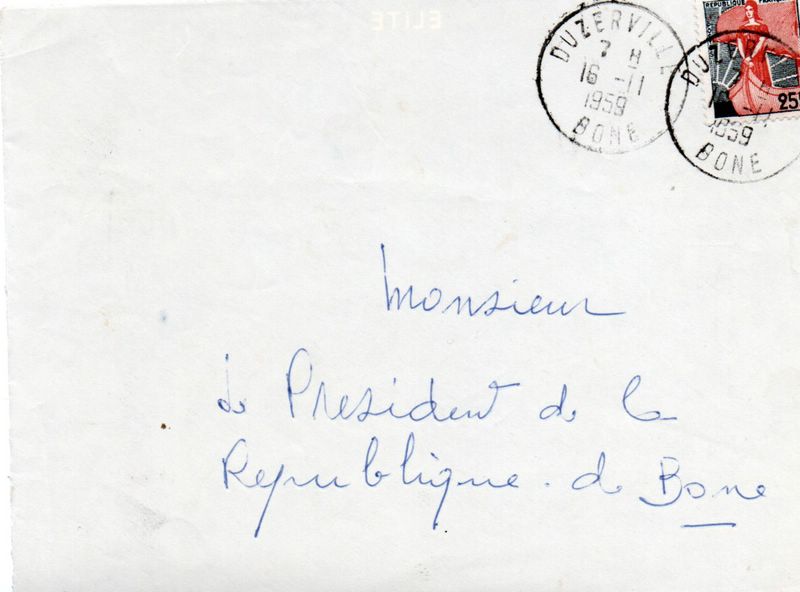 ELITE
DUZERVILLE
7 H
16 -11
1959
BONE
REPUBLIQUE FRANÇAISE
25F
DUZERVILLE
16 -11
1959
BONE
Monsieur
Le President de la
Republique. de Bone